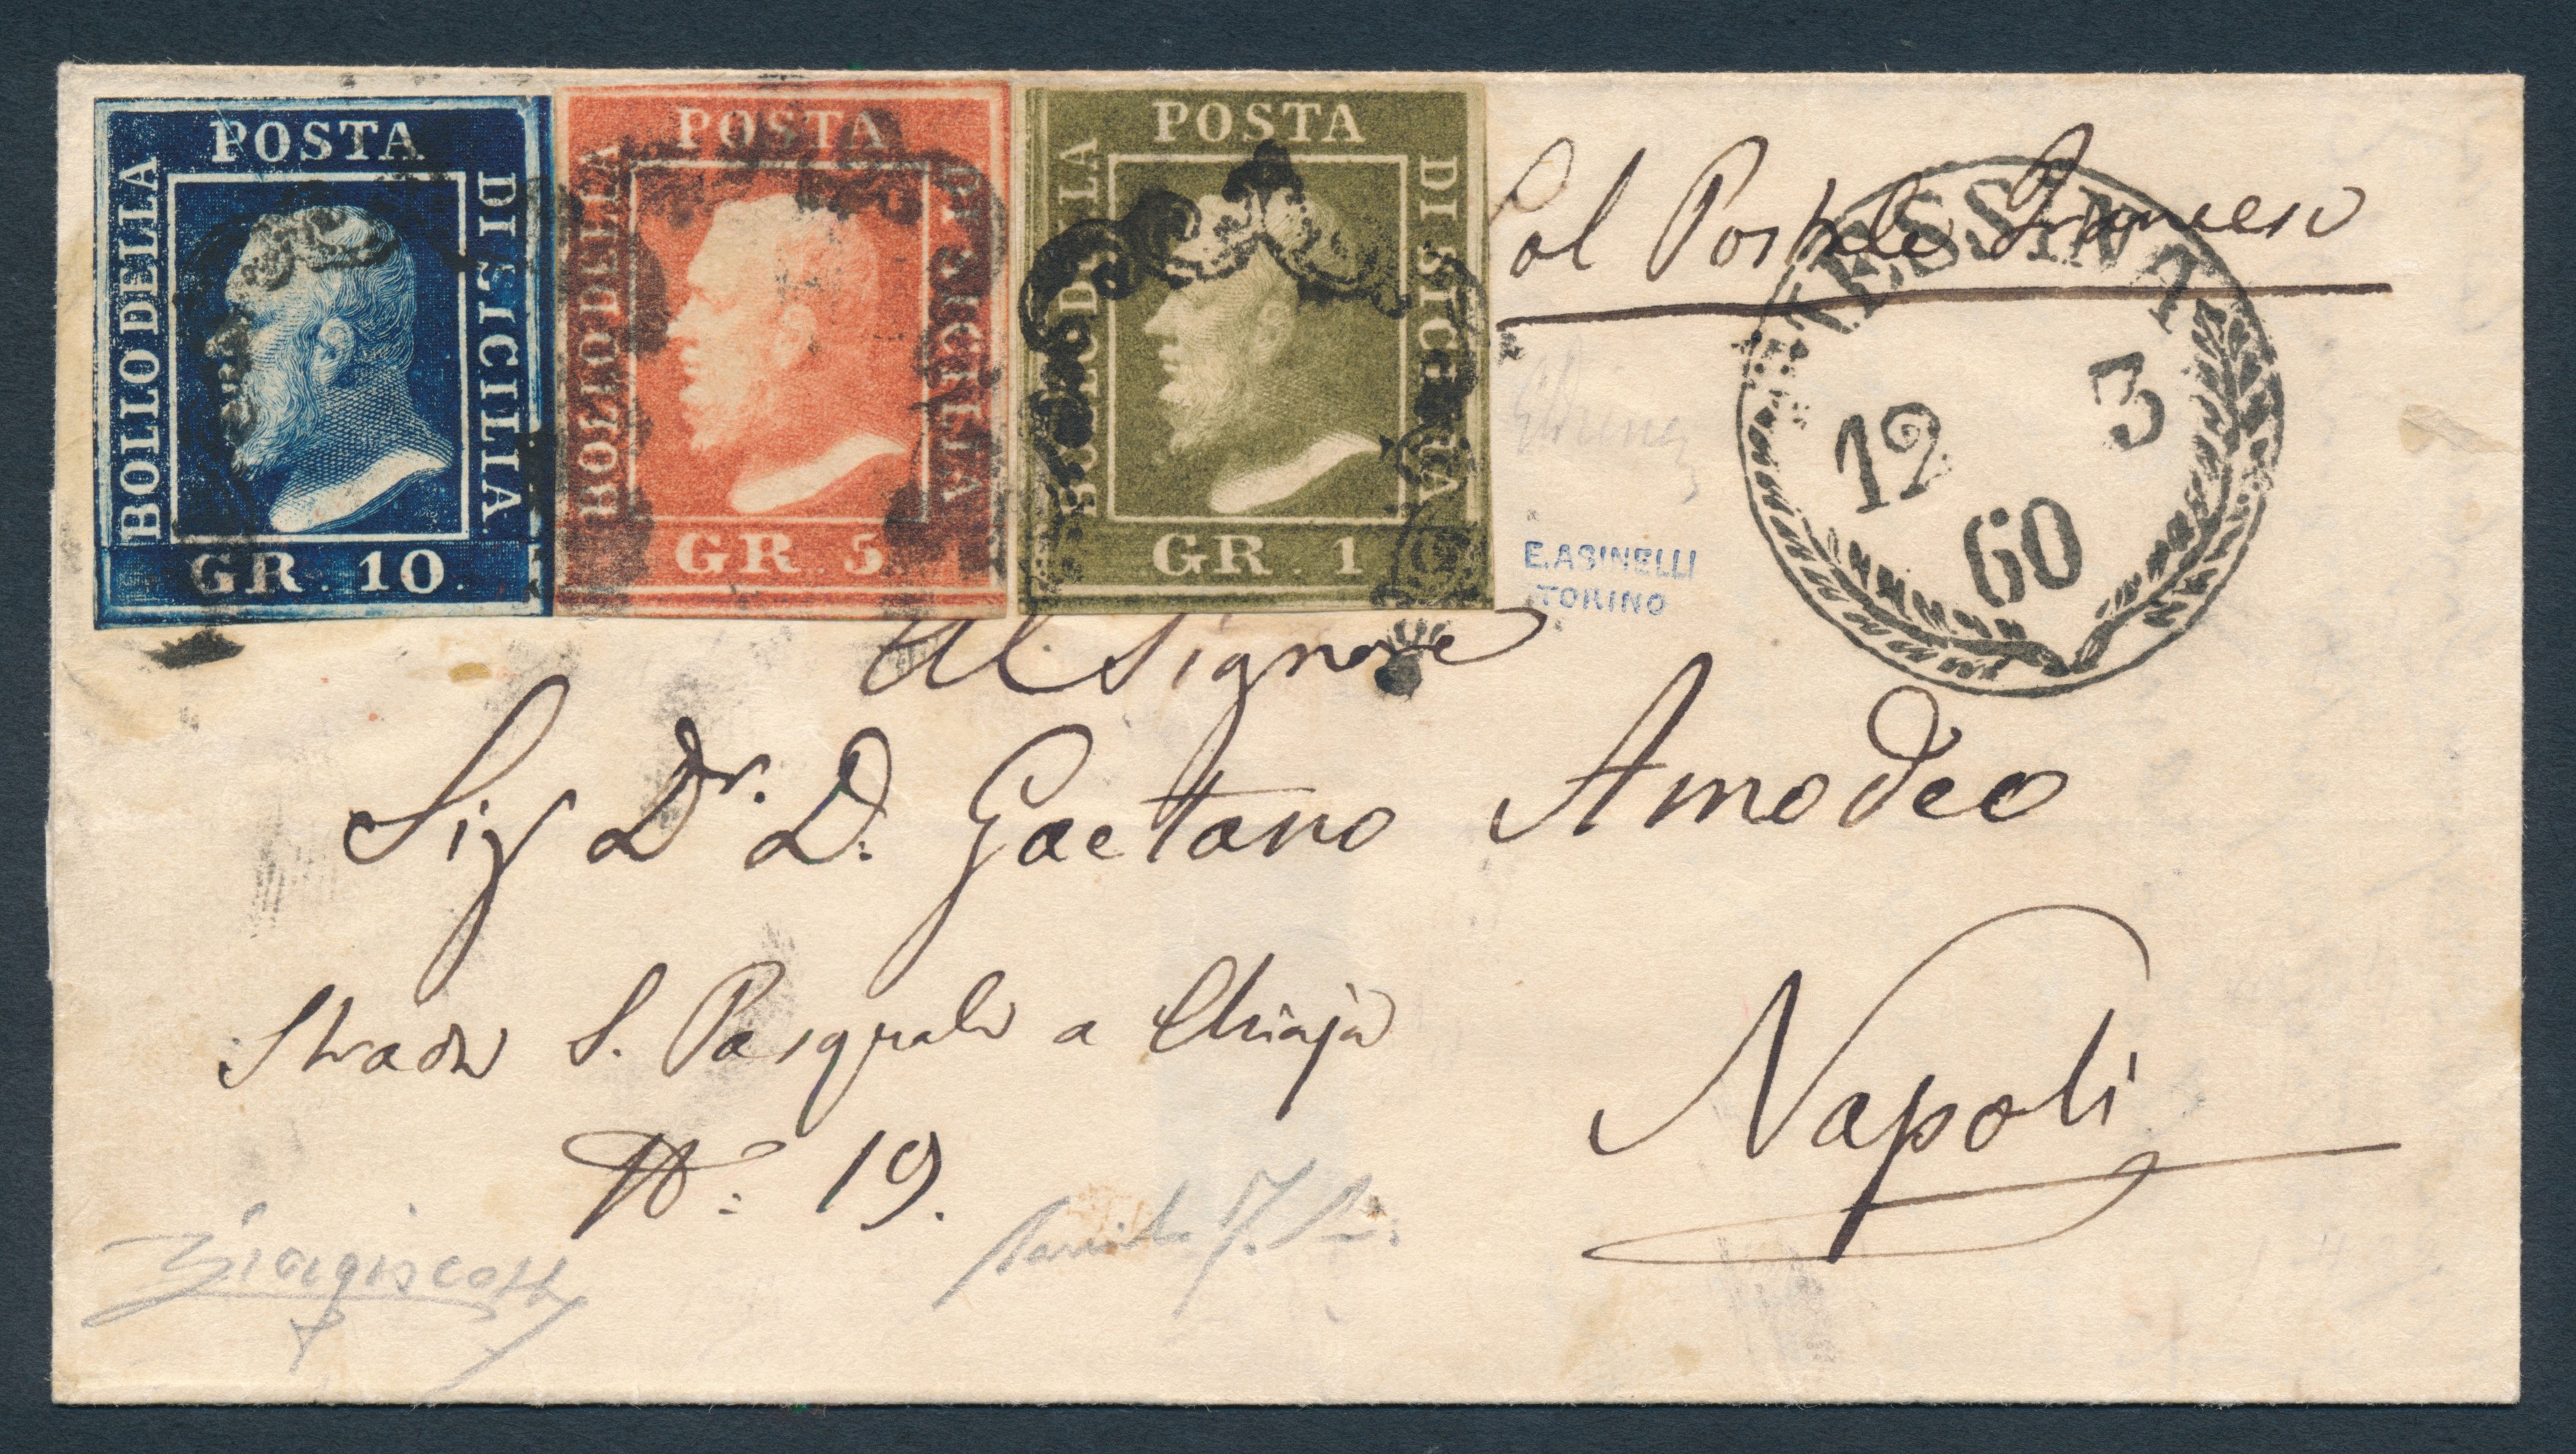 POSTA
BOLLO DELLA
DI SICILIA
GR. 10.
POSTA
BOLLO DELLA
DI SICILIA
GR. 5
POSTA
BOLLO DELLA
DI SICILIA
GR. 1
Col Postale Francese
MESSINA
12 3
60
E. ASINELLI
TORINO
Al Signore
Sig Dr. D. Gaetano Amodeo
Strada S. Pasquale a Chiaja
N: 19.
Napoli